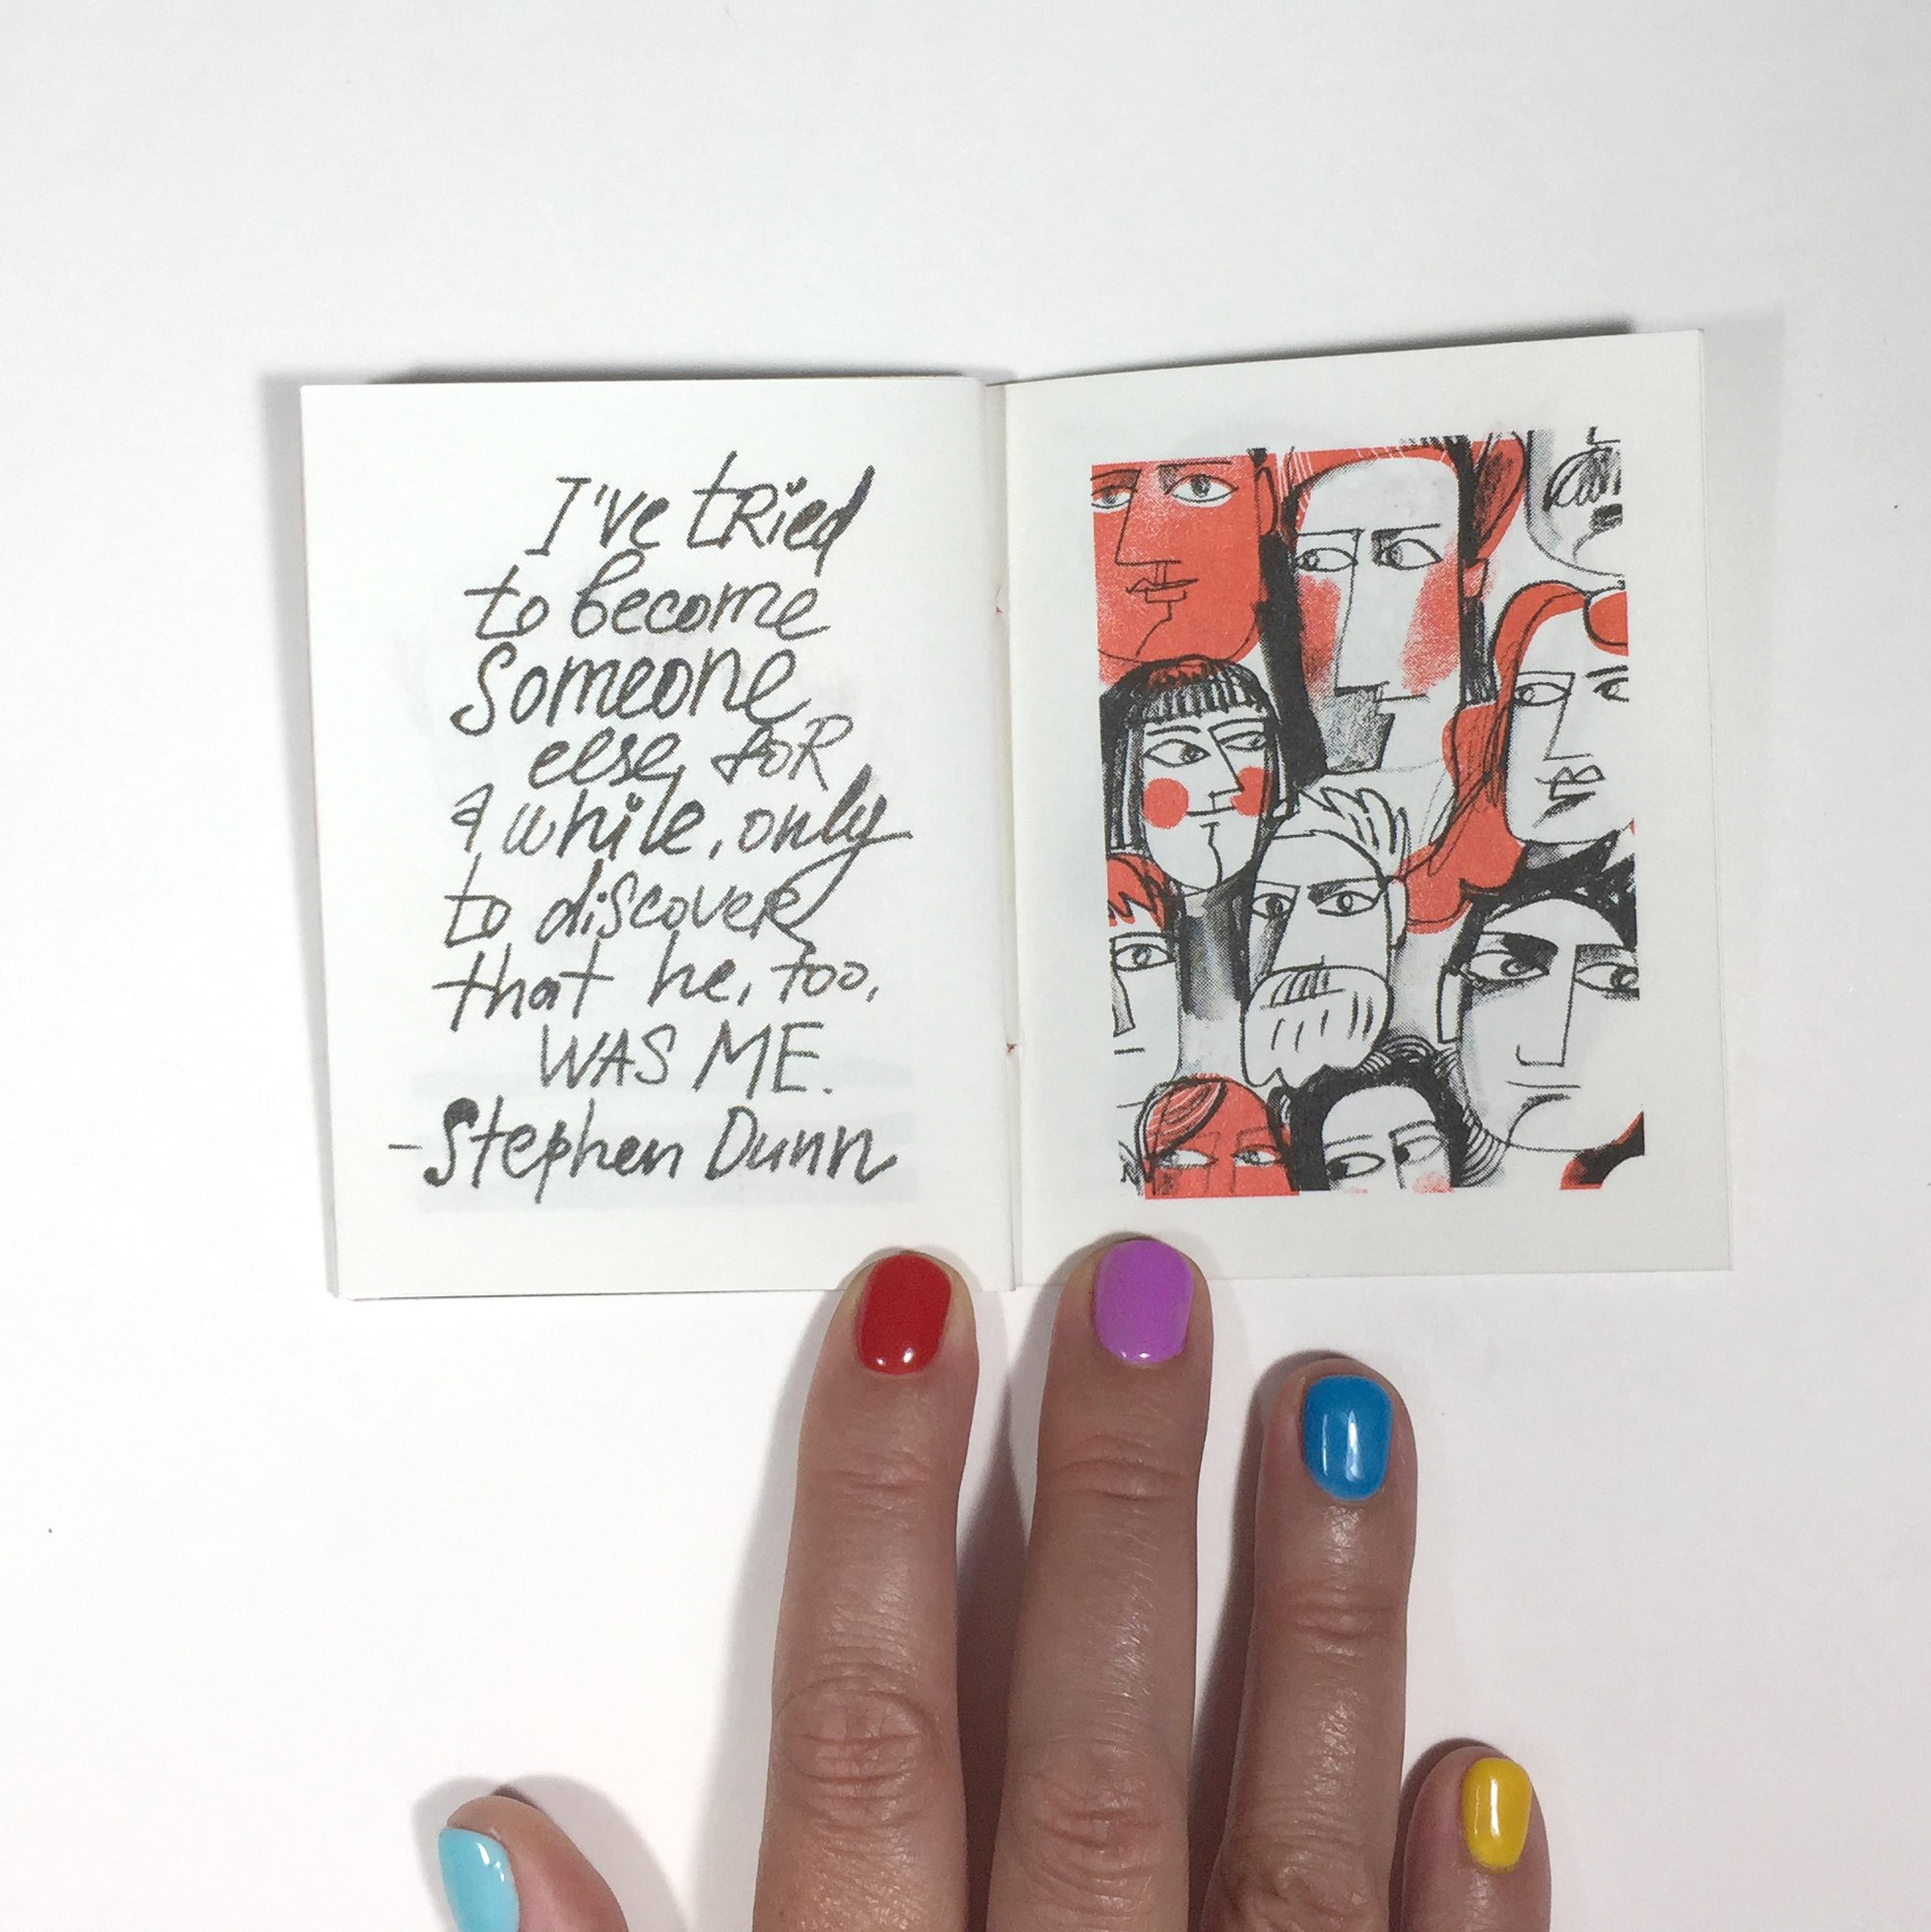 I've tried
to become
someone
else for
a while, only
to discover
that he, too,
WAS ME.
-Stephen Dunn